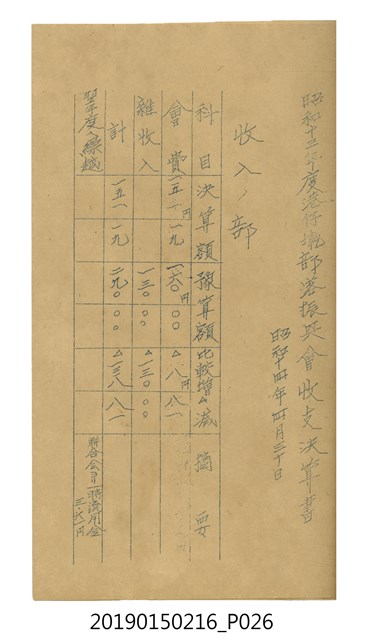 昭和十三年度港仔墘部落振興會收支決算書
昭和十四年四月三十日
收入ノ部
科目 決算額 豫算額 比較增△減 摘要
會費 一五一円一九 一六〇円〇〇 △八円八一
雜收入 一三〇〇〇 △一三〇〇〇
計 一五一一九 二九〇〇〇 △一三八八一
翌年度へ繰越
聯合会ヨリ
三
20190150216_P026